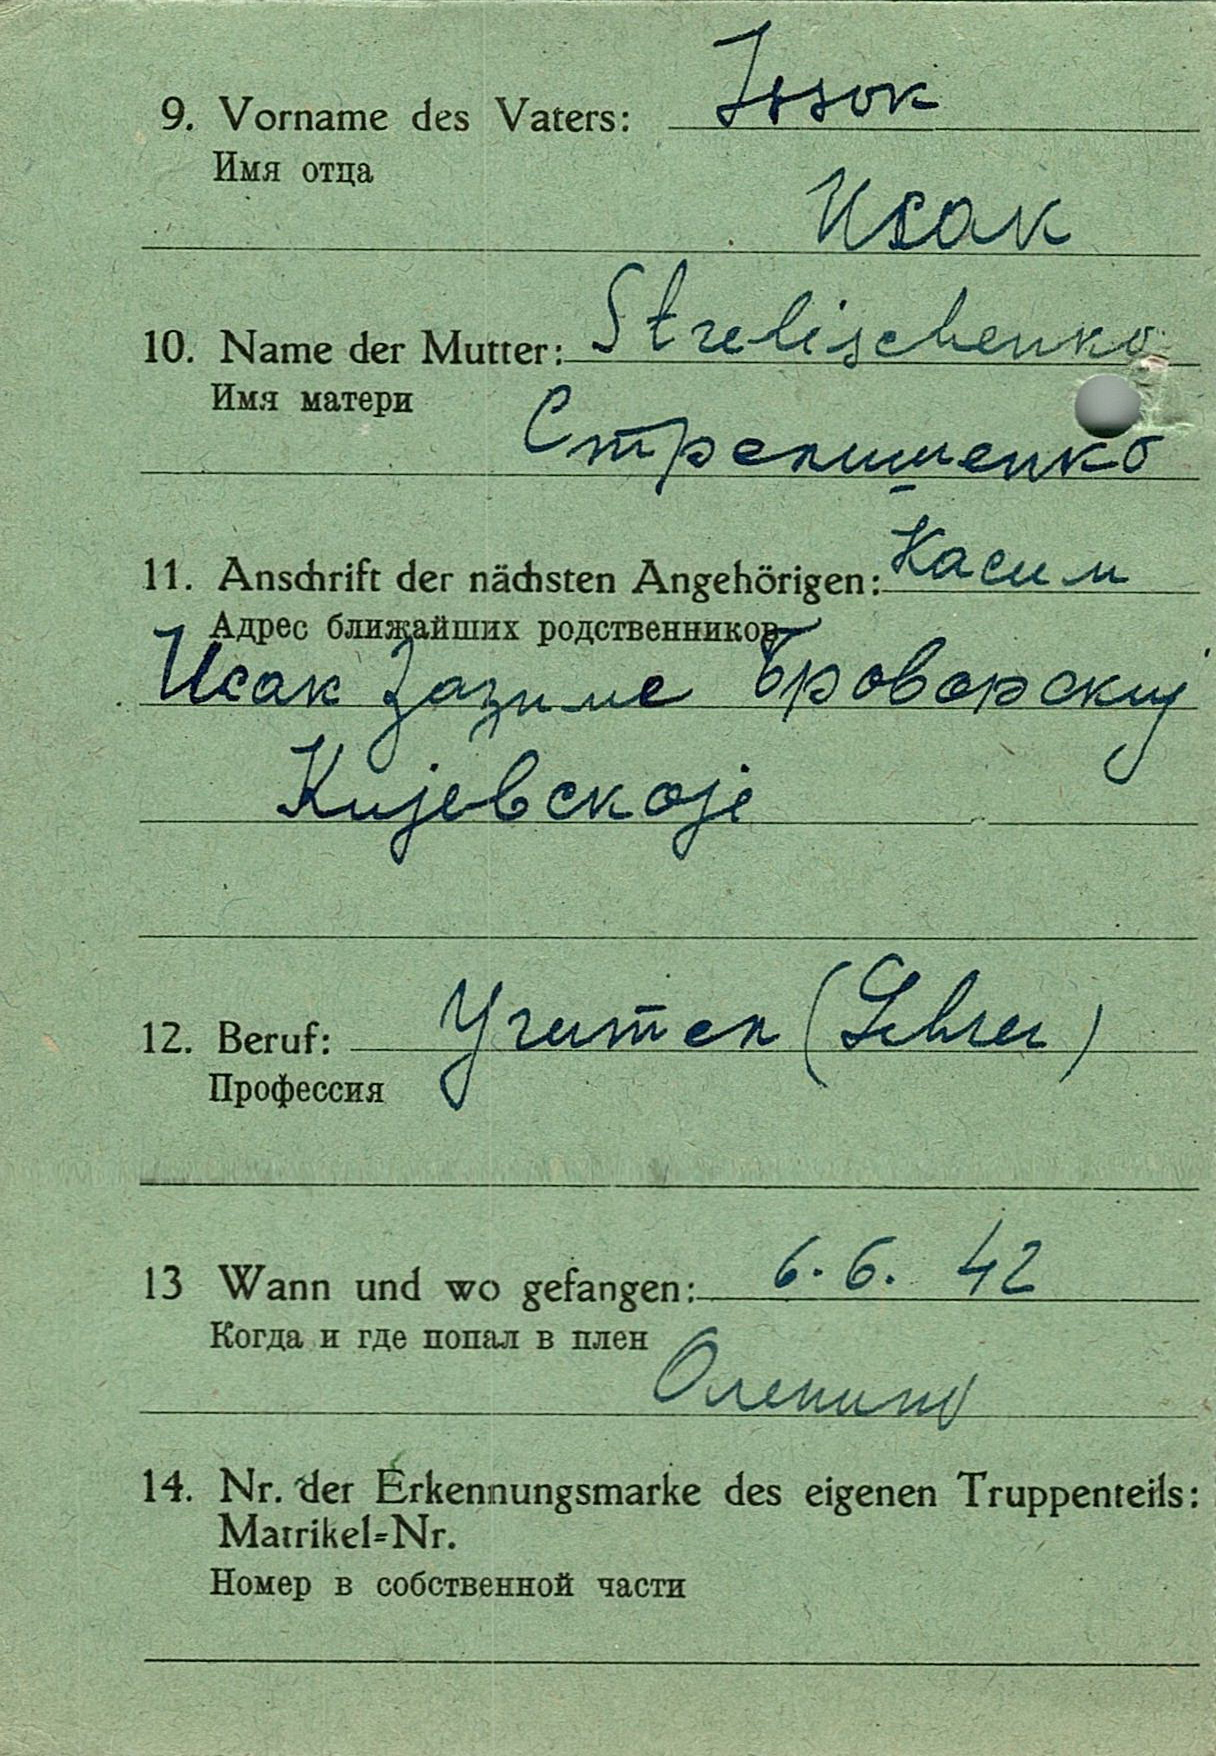 9. Vorname des Vaters: Issok
Имя отца
Исак
10. Name der Mutter: Strelischenko
Имя матери
Стрелишенко
11. Anschrift der nächsten Angehörigen: Касим
Адрес ближайших родственников
Исак Зазиме Броварскиј
Кијевскоје
12. Beruf: Учител (Lehrer)
Профессия
13 Wann und wo gefangen: 6. 6. 42
Когда и где попал в плен
Оленино
14. Nr. der Erkennungsmarke des eigenen Truppenteils:
Matrikel=Nr.
Номер в собственной части